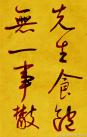 先生食飽
無一事